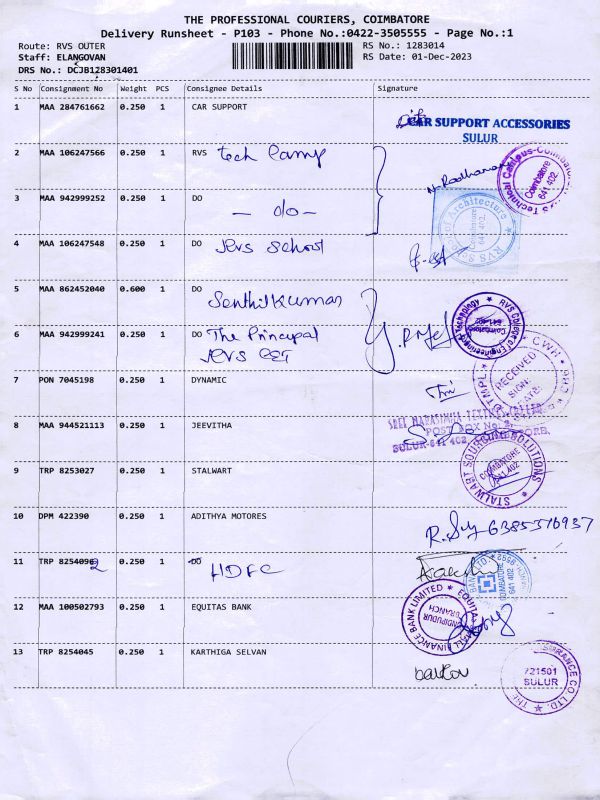 THE PROFESSIONAL COURIERS, COIMBATORE
Delivery Runsheet - P103 - Phone No.:0422-3505555 - Page No.:1
Route: RVS OUTER RS No.: 1283014
Staff: ELANGOVAN RS Date: 01-Dec-2023
DRS No.: DCJB128301401
S No Consignment No Weight PCS Consignee Details Signature
1 MAA 284761662 0.250 1 CAR SUPPORT
CAR SUPPORT ACCESSORIES
SULUR
2 MAA 106247566 0.250 1 RVS tech Camp
N. Radhamani
RVS Technical Campus-Coimbatore
Coimbatore
641 402.
3 MAA 942999252 0.250 1 DO - do -
RVS School of Architecture
Coimbatore
641 402.
4 MAA 106247548 0.250 1 DO RVS School
5 MAA 862452040 0.600 1 DO Senthil Kumar
RVS College of Engineering & Technology
Coimbatore
641 402
6 MAA 942999241 0.250 1 DO The Principal
RVS CET
7 PON 7045198 0.250 1 DYNAMIC
RECEIVED
SIGN:
DATE:
8 MAA 944521113 0.250 1 JEEVITHA
SREE NARASIMHA TEXTILES
POST BOX No.
SULUR-641 402
9 TRP 8253027 0.250 1 STALWART
STALWART SOURCING SOLUTIONS
COIMBATORE
641 402
10 DPM 422390 0.250 1 ADITHYA MOTORES
6385316937
11 TRP 8254092 0.250 1 DO HDFC
BANK LTD.
COIMBATORE
641 402
12 MAA 100502793 0.250 1 EQUITAS BANK
EQUITAS SMALL FINANCE BANK LIMITED
BRANCH
13 TRP 8254045 0.250 1 KARTHIGA SELVAN
THE INSURANCE CO LTD.
721501
SULUR